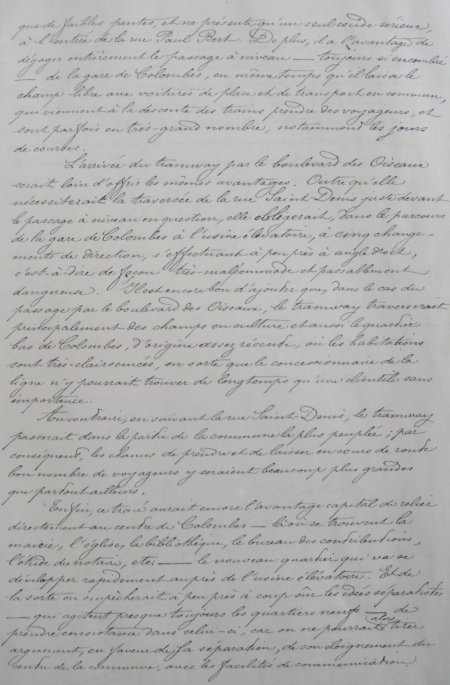 que de faibles pentes, et ne présente qu'un seul coude sérieux,
à l'entrée de la rue Paul Bert. De plus, il a l'avantage de
dégager entièrement le passage à niveau — toujours si encombré
— de la gare de Colombes, en même temps qu'il laisse le
champ libre aux voitures de place et de transport en commun,
qui viennent à la descente des trains prendre des voyageurs, et
sont parfois en très-grand nombre, notamment les jours
de courses.
L'arrivée du tramway par le boulevard des Oiseaux
serait loin d'offrir les mêmes avantages. Outre qu'elle
nécessiterait la traversée de la rue Saint-Denis juste devant
le passage à niveau en question, elle obligerait, dans le parcours
de la gare de Colombes à l'usine élévatoire, à cinq change-
ments de direction, s'effectuant à peu près à angle droit,
c'est-à-dire de façon très-malcommode et passablement
dangereuse. Il est encore bon d'ajouter que, dans le cas du
passage par le boulevard des Oiseaux, le tramway traverserait
principalement des champs en culture et aussi le quartier
bas de Colombes, d'origine assez récente, où les habitations
sont très-clairsemées, en sorte que le concessionnaire de la
ligne n'y pourrait trouver de longtemps qu'une clientèle sans
importance.
Au contraire, en suivant la rue Saint-Denis, le tramway
passerait dans la partie de la commune la plus peuplée ; par
conséquent, les chances de prendre et de laisser en cours de route
bon nombre de voyageurs y seraient beaucoup plus grandes
que partout ailleurs.
Enfin, ce tracé aurait encore l'avantage capital de relier
directement au centre de Colombes — là où se trouvent la
mairie, l'église, la bibliothèque, le bureau des contributions,
l'étude de notaire, etc. — le nouveau quartier qui va se
développer rapidement auprès de l'usine élévatoire. Et de
la sorte on empêcherait à peu près à coup sûr les idées séparatistes
— qui agitent presque toujours les quartiers neufs — de
prendre consistance dans celui-ci, car on ne pourrait alors tirer
argument, en faveur de la séparation, de son éloignement du
centre de la commune, avec les facilités de communication